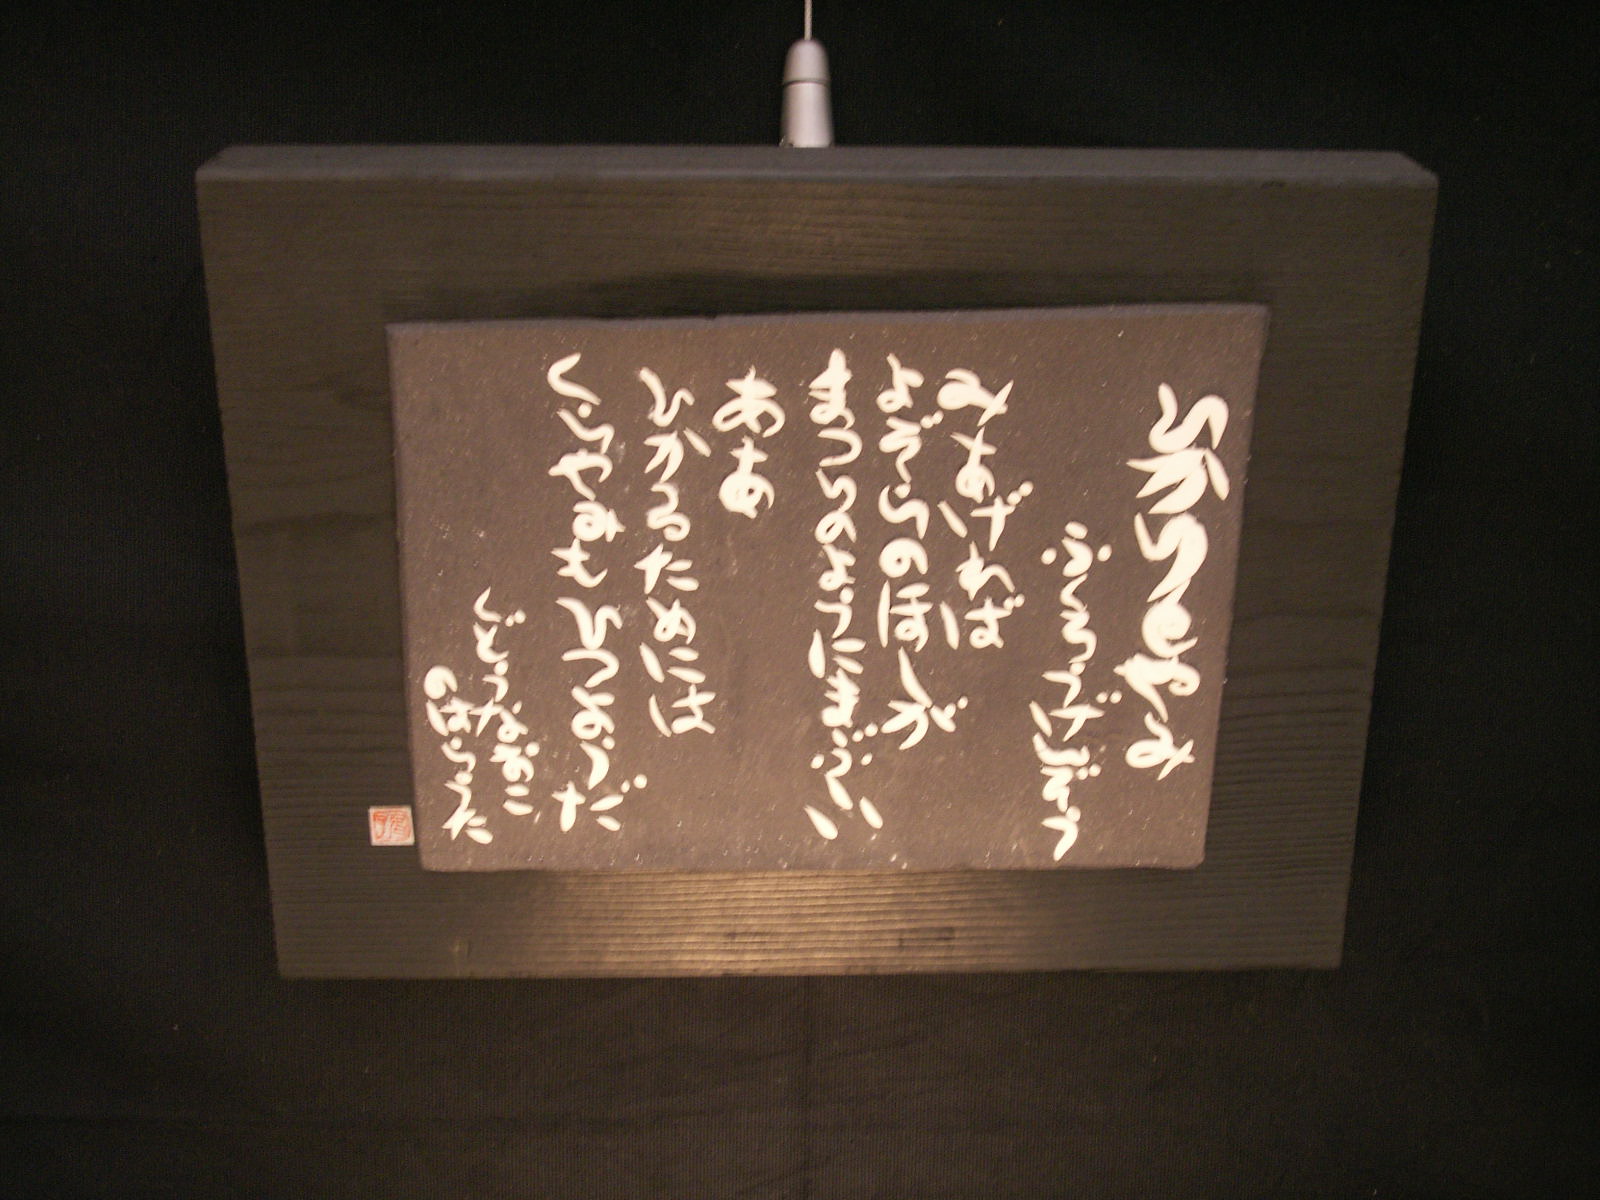 ひかりとやみ
ふくろうげんぞう
みあげれば
よぞらのほしが
まつりのようにまぶしい
ああ
ひかるためには
くらやみも ひつようだ
くどうなおこ
のはらうた